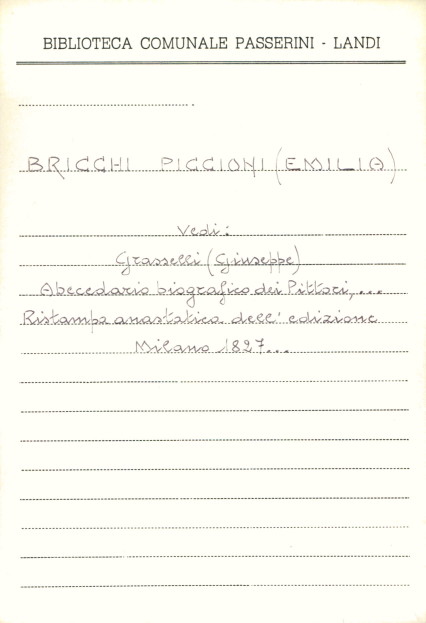 BIBLIOTECA COMUNALE PASSERINI - LANDI
BRICCHI PICCIONI (EMILIA)
Vedi:
Grasselli (Giuseppe)
Abecedario biografico dei Pittori,...
Ristampa anastatica dell' edizione
Milano 1827...